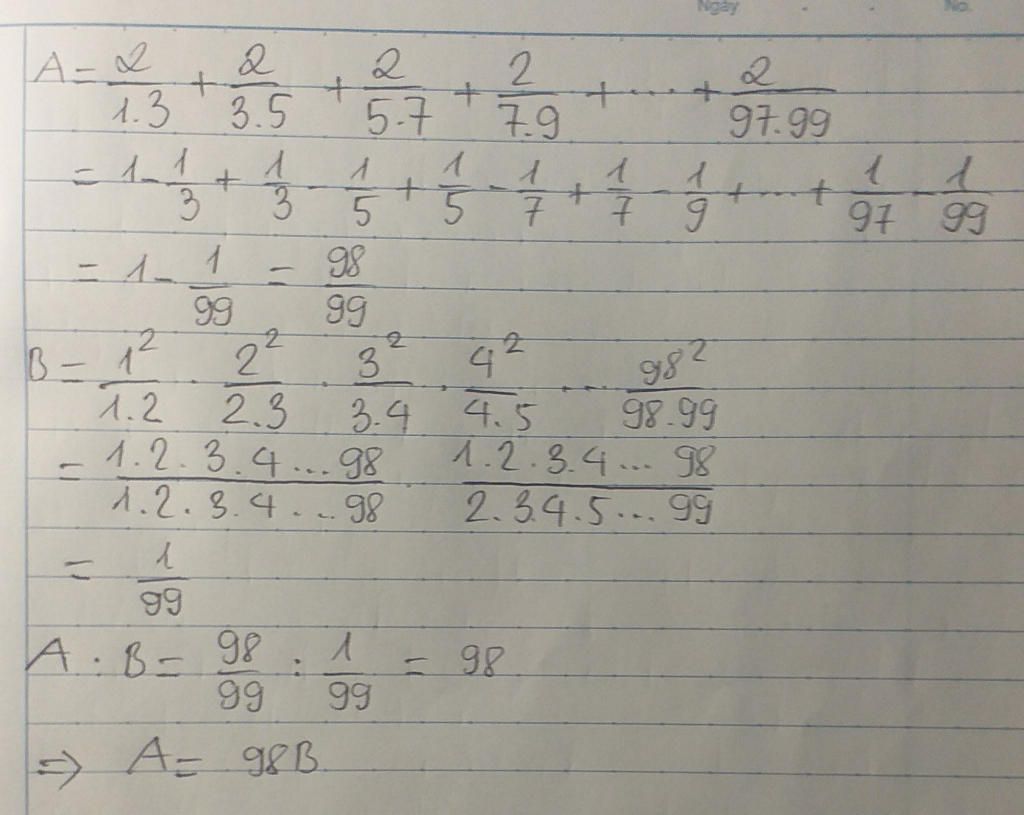 Ngày . . No.
A = 2/1.3 + 2/3.5 + 2/5.7 + 2/7.9 + ... + 2/97.99
= 1 - 1/3 + 1/3 - 1/5 + 1/5 - 1/7 + 1/7 - 1/9 + ... + 1/97 - 1/99
= 1 - 1/99 = 98/99
B = 1²/1.2 . 2²/2.3 . 3²/3.4 . 4²/4.5 ... 98²/98.99
= 1.2.3.4...98/1.2.3.4...98 . 1.2.3.4...98/2.3.4.5...99
= 1/99
A : B = 98/99 : 1/99 = 98
⇒ A = 98B